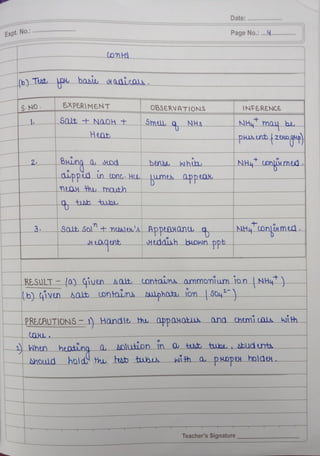 Date: ...............
Expt. No.: ...............
Page No.: ...4...
Contd
(b) Test for basic radicals.
S.NO. EXPERIMENT OBSERVATIONS INFERENCE
1. Salt + NaOH + Smell of NH3 NH4+ may be
Heat present (zero grp)
2. Bring a rod Dense white NH4+ confirmed.
dipped in conc. HCl fumes appear
near the mouth
of test tube
3. Salt solⁿ + nessler's Appearance of NH4+ confirmed.
reagent reddish brown ppt
RESULT - (a) Given salt contains ammonium ion (NH4+)
(b) Given salt contains sulphate ion (SO4²⁻)
PRECAUTIONS - 1) Handle the apparatus and chemicals with
care.
2) When heating a solution in a test tube, students
should hold the test tubes with a proper holder.
Teacher's Signature _______________